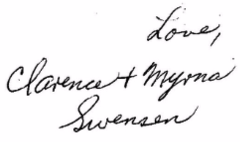 Love,
Clarence + Myrna
Swensen